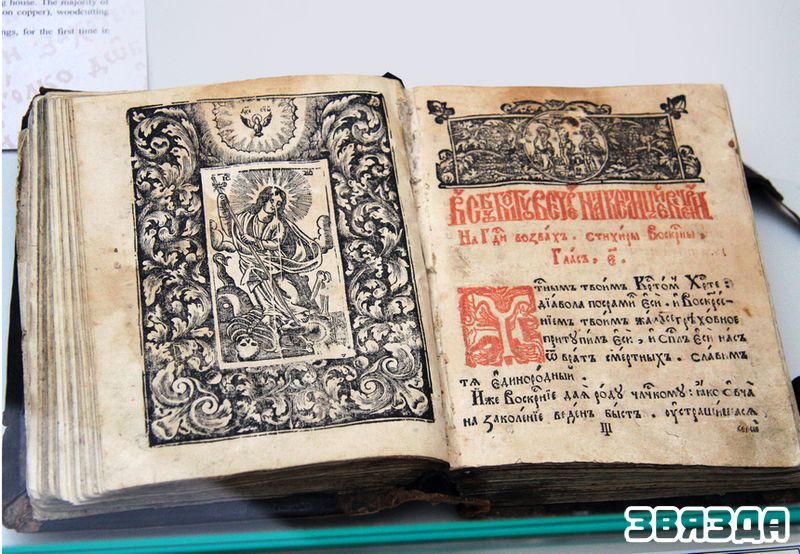 g house. The majority of
on copper), woodcutting
ngs, for the first time in
На Гдⷭ҇и воззвахъ. стихиры Воскрⷭ҇ны.
Гласъ, є҃.
тнымъ твоимъ Крⷭ҇томъ Хрⷭ҇те
дїавола посрами єси. и Воскрⷭ҇е-
нїемъ твоимъ жало грѣховное
притупилъ єси, и спⷭ҇лъ єси насъ
ѿ вратъ смертныхъ. славимъ
тѧ единородный
Иже Воскрⷭ҇нїе даѧ роду члч҃кому: ꙗко овча
на заколенїе веденъ бысть. оустрашишасѧ
ЗВЯЗДА